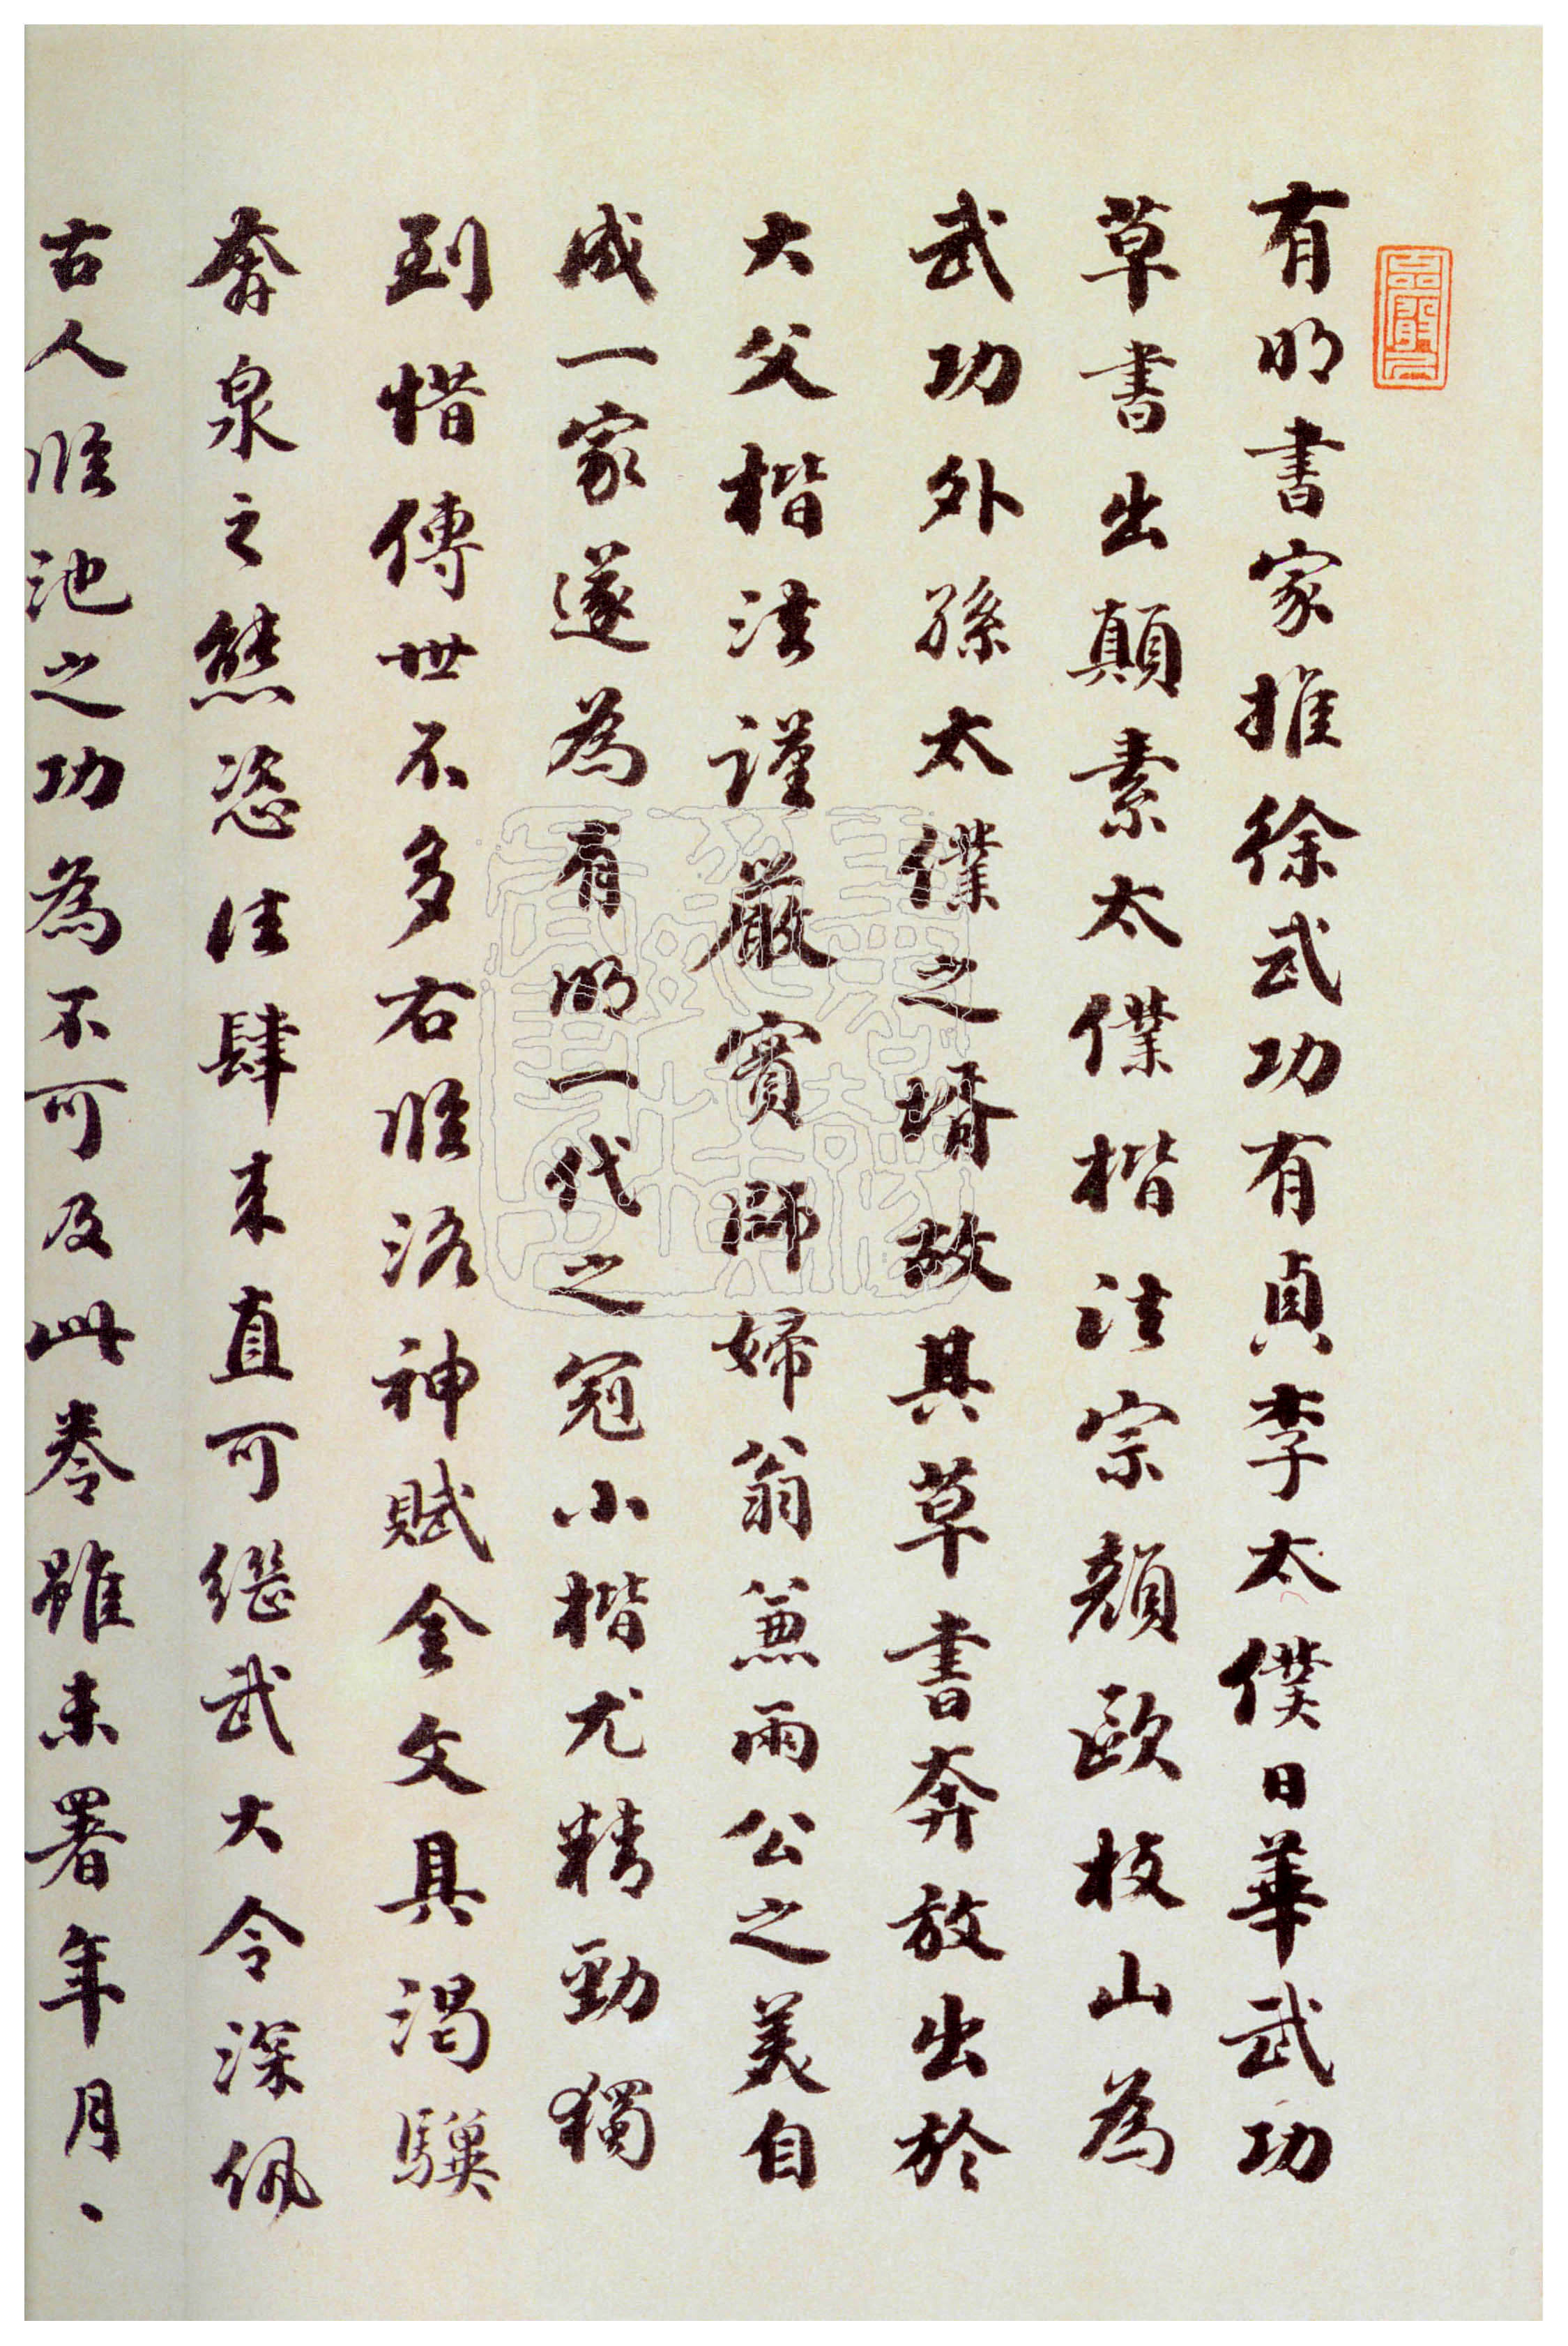 有明書家推徐武功有貞李太僕日華武功
草書出顛素太僕楷法宗顏歐枝山為
武功外孫太僕之壻故其草書奔放出於
大父楷法謹嚴實師婦翁兼兩公之美自
成一家遂為有明一代之冠小楷尤精勁獨
到惜傳世不多右臨洛神賦全文具渴驥
奔泉之態恣往肆來直可繼武大令深佩
古人臨池之功為不可及此卷雖未署年月、